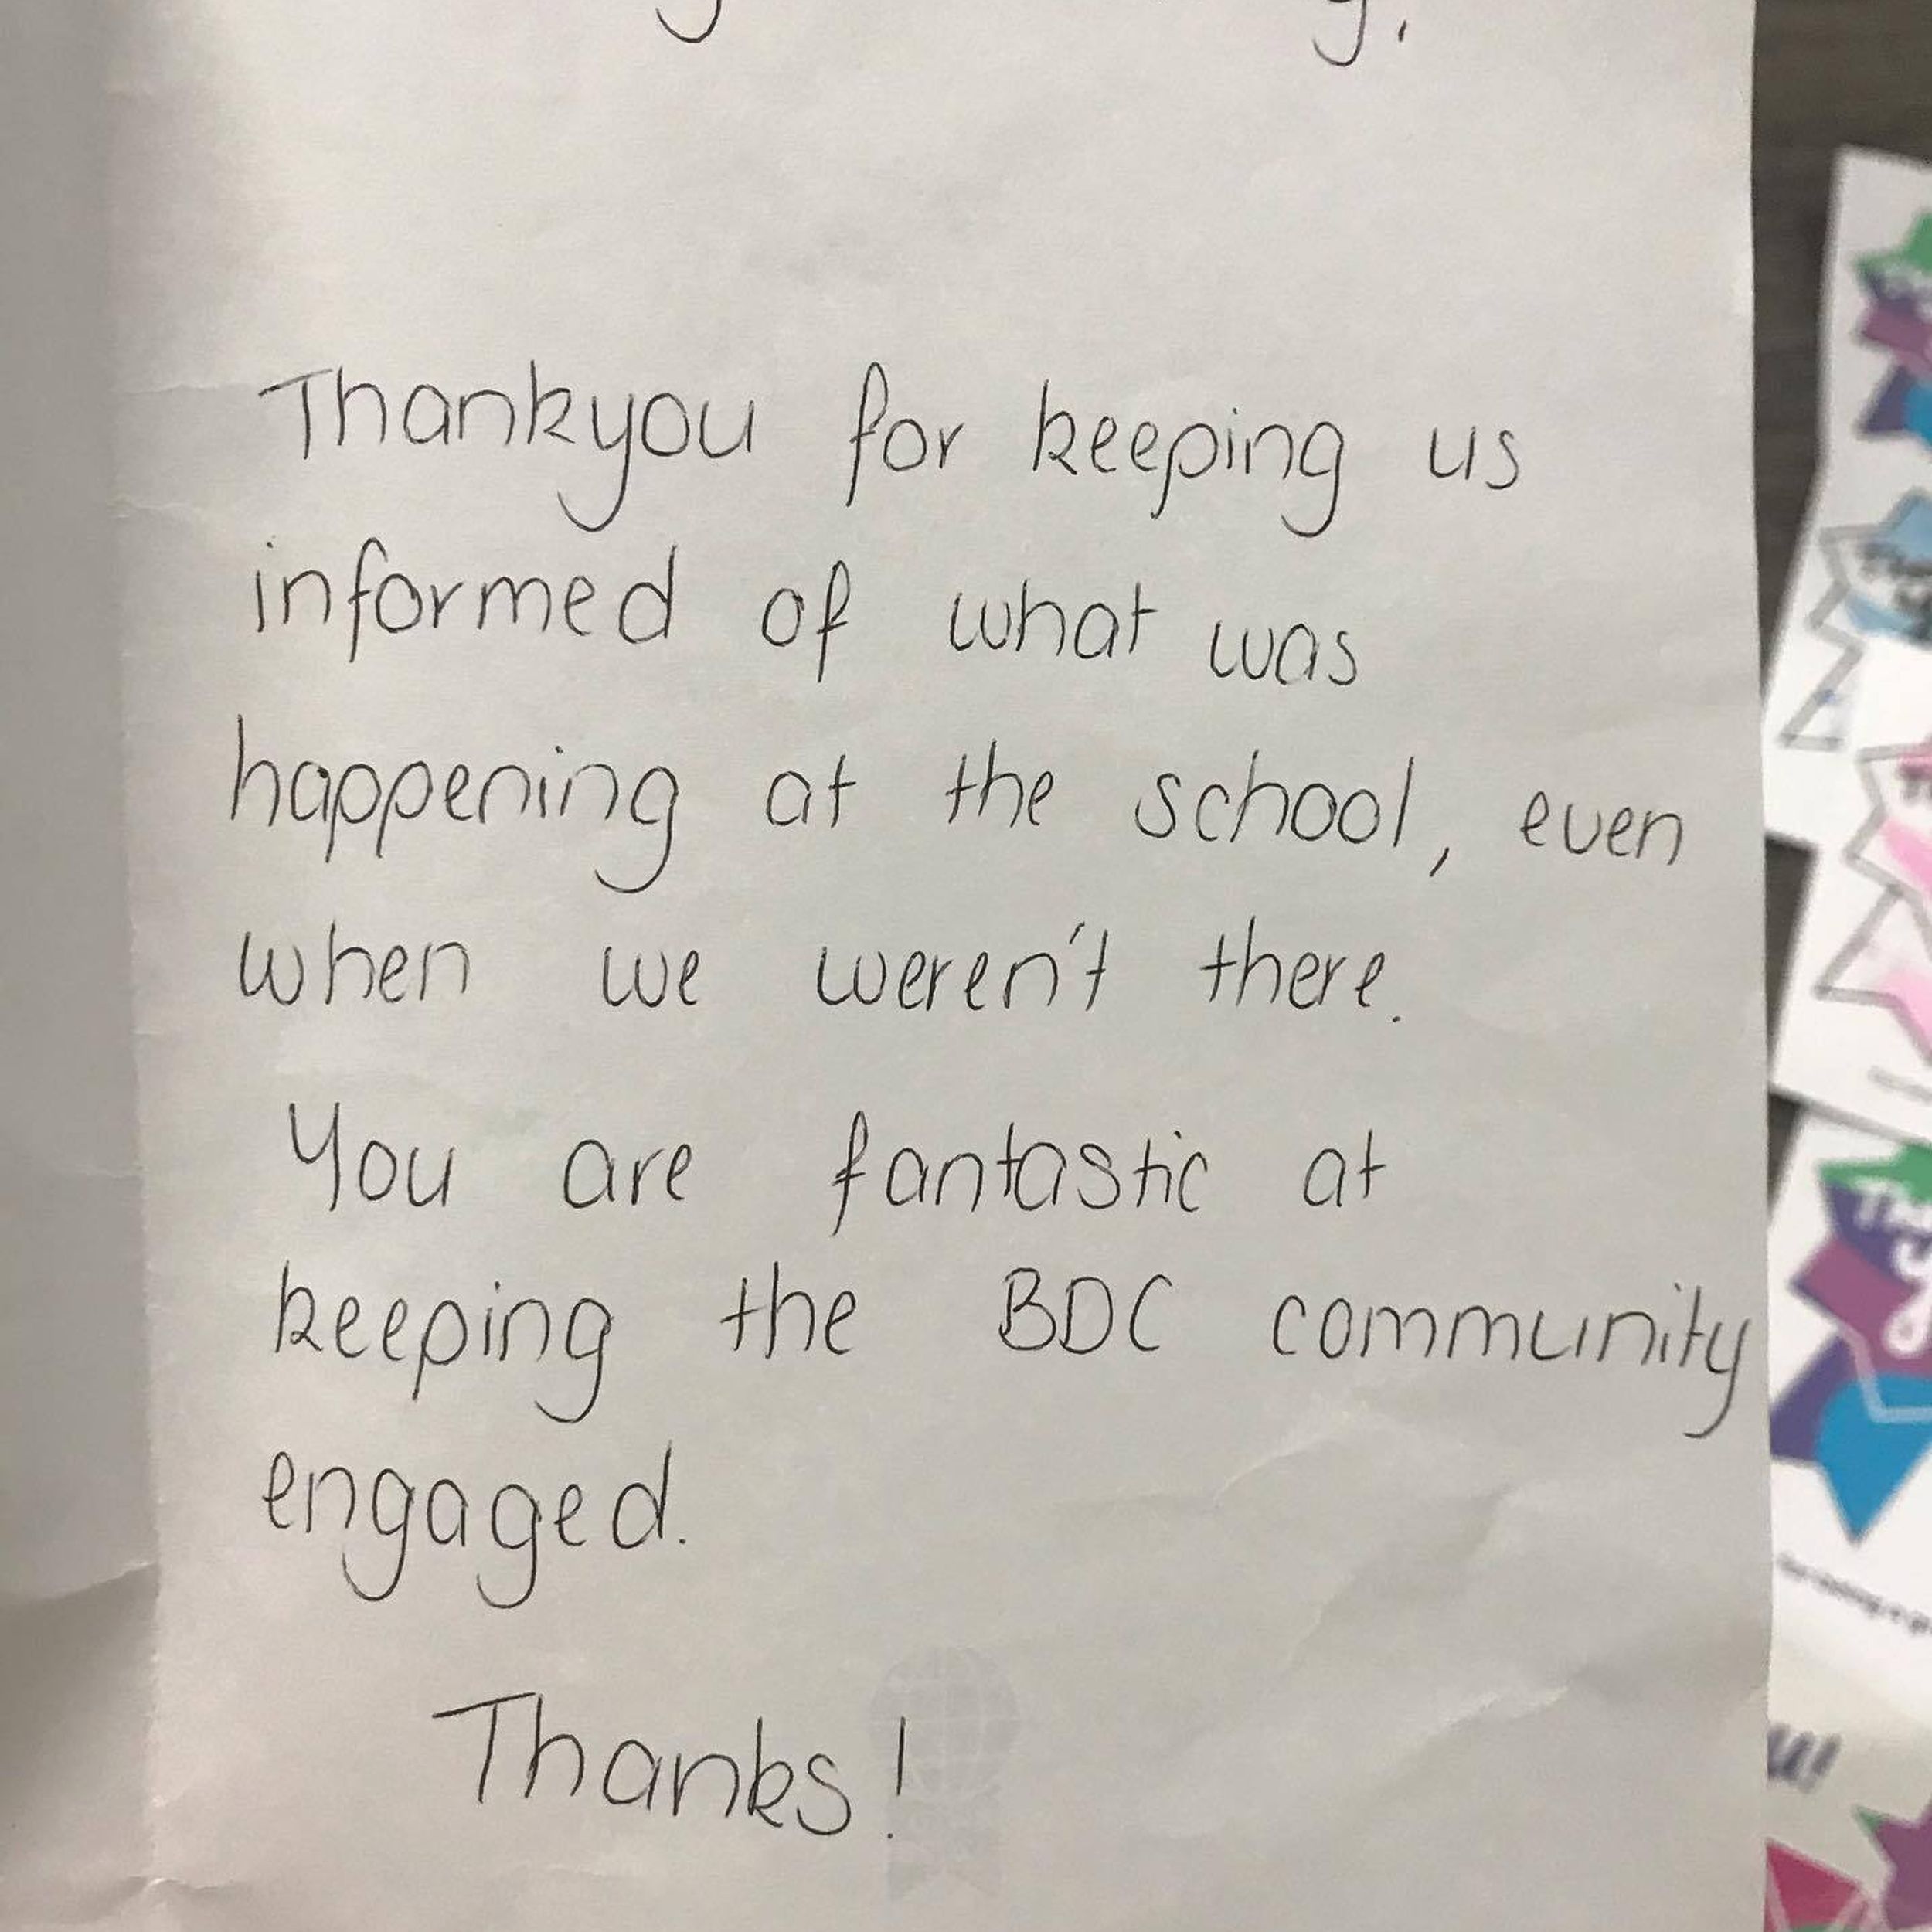 Thankyou for keeping us
informed of what was
happening at the school, even
when we weren't there.
You are fantastic at
keeping the BDC community
engaged.
Thanks!